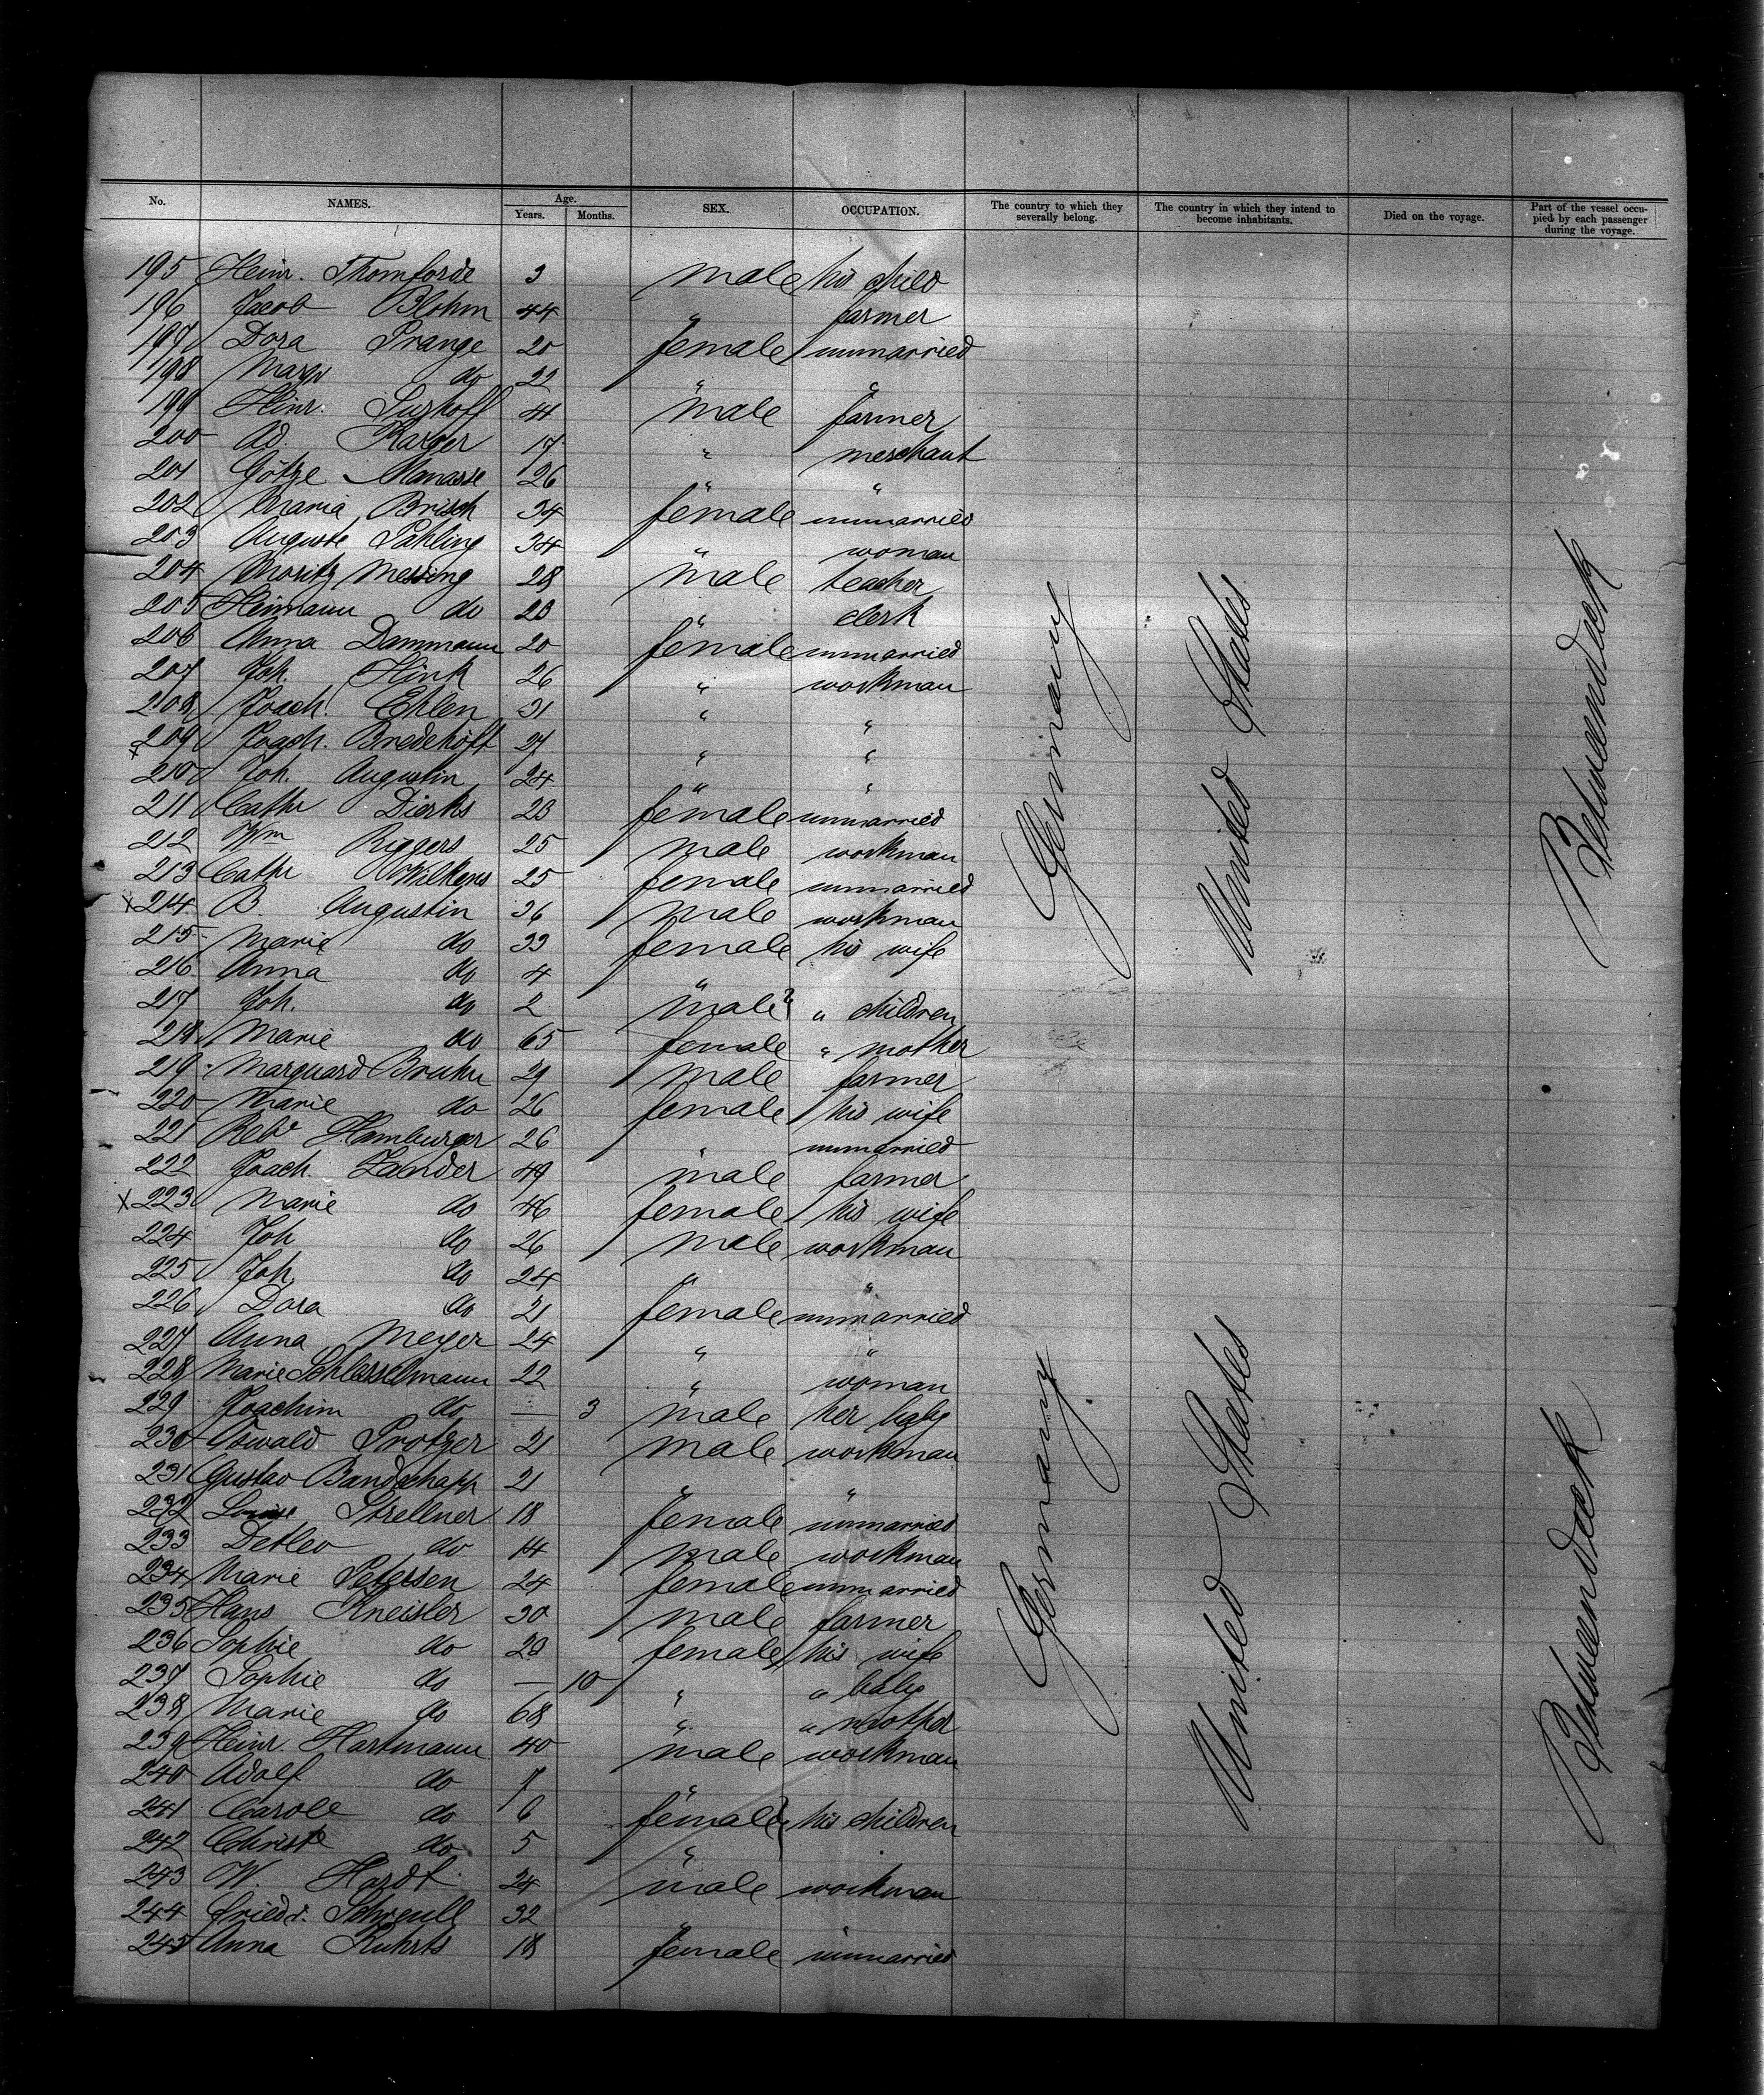 No. NAMES. Age. Years. Months. SEX. OCCUPATION. The country to which they severally belong. The country in which they intend to become inhabitants. Died on the voyage. Part of the vessel occupied by each passenger during the voyage.
195 Heinr. Thomforde 3 male his child
196 Jacob Blohm 44 " farmer
197 Dora Prange 20 female unmarried
198 Mary do 22 " "
199 Heinr. 41 male farmer
200 Ad. Karger 17 " merchant
201 Götze Manasse 26 " "
202 Maria Brisch 34 female unmarried
203 Auguste Pahling 34 " woman
204 Moritz Messing 28 male teacher
205 Heimann do 23 " clerk
206 Anna Dammann 20 female unmarried
207 Joh. Hink 26 " workman
208 Joach. Ehlen 31 " "
x 209 Joach. Bredehöft 27 " "
210 Joh. Augustin 24 " "
211 Cathr Dierks 23 female unmarried
212 Wm Riggers 25 male workman
213 Cathr Wilkens 25 female unmarried
x 214 B. Augustin 36 male workman
215 Marie do 33 female his wife
216 Anna do 4 "
217 Joh. do 2 male } " children
218 Marie do 65 female " mother
219 Marquard Bruhn 29 male farmer
220 Marie do 26 female his wife
221 Reb. Hamburger 26 " unmarried
222 Joach. Zander 49 male farmer
x 223 Marie do 46 female his wife
224 Joh do 26 male workman
225 Joh. do 24 " "
226 Dora do 21 female unmarried
227 Anna Meyer 24 " "
228 Marie Schlesselmann 22 " woman
229 Joachim do — 3 male her baby
230 Oswald Protzer 21 male workman
231 Gustav Bandschapp 21 " "
232 Louise Strellner 18 female unmarried
233 Detlev do 14 male workman
234 Marie Petersen 24 female unmarried
235 Hans Kneisler 30 male farmer
236 Sophie do 28 female his wife
237 Sophie do — 10 " " baby
238 Marie do 68 " " mother
239 Heinr. Hartmann 40 male workman
240 Adolf do 7 "
241 Carole do 6 female } his children
242 Christe do 5 "
243 W. Hardt 24 male workman
244 Friedr. Schreull 32 "
245 Anna Kuhrts 18 female unmarried
Germany
United States
Betweendeck
Germany
United States
Betweendeck